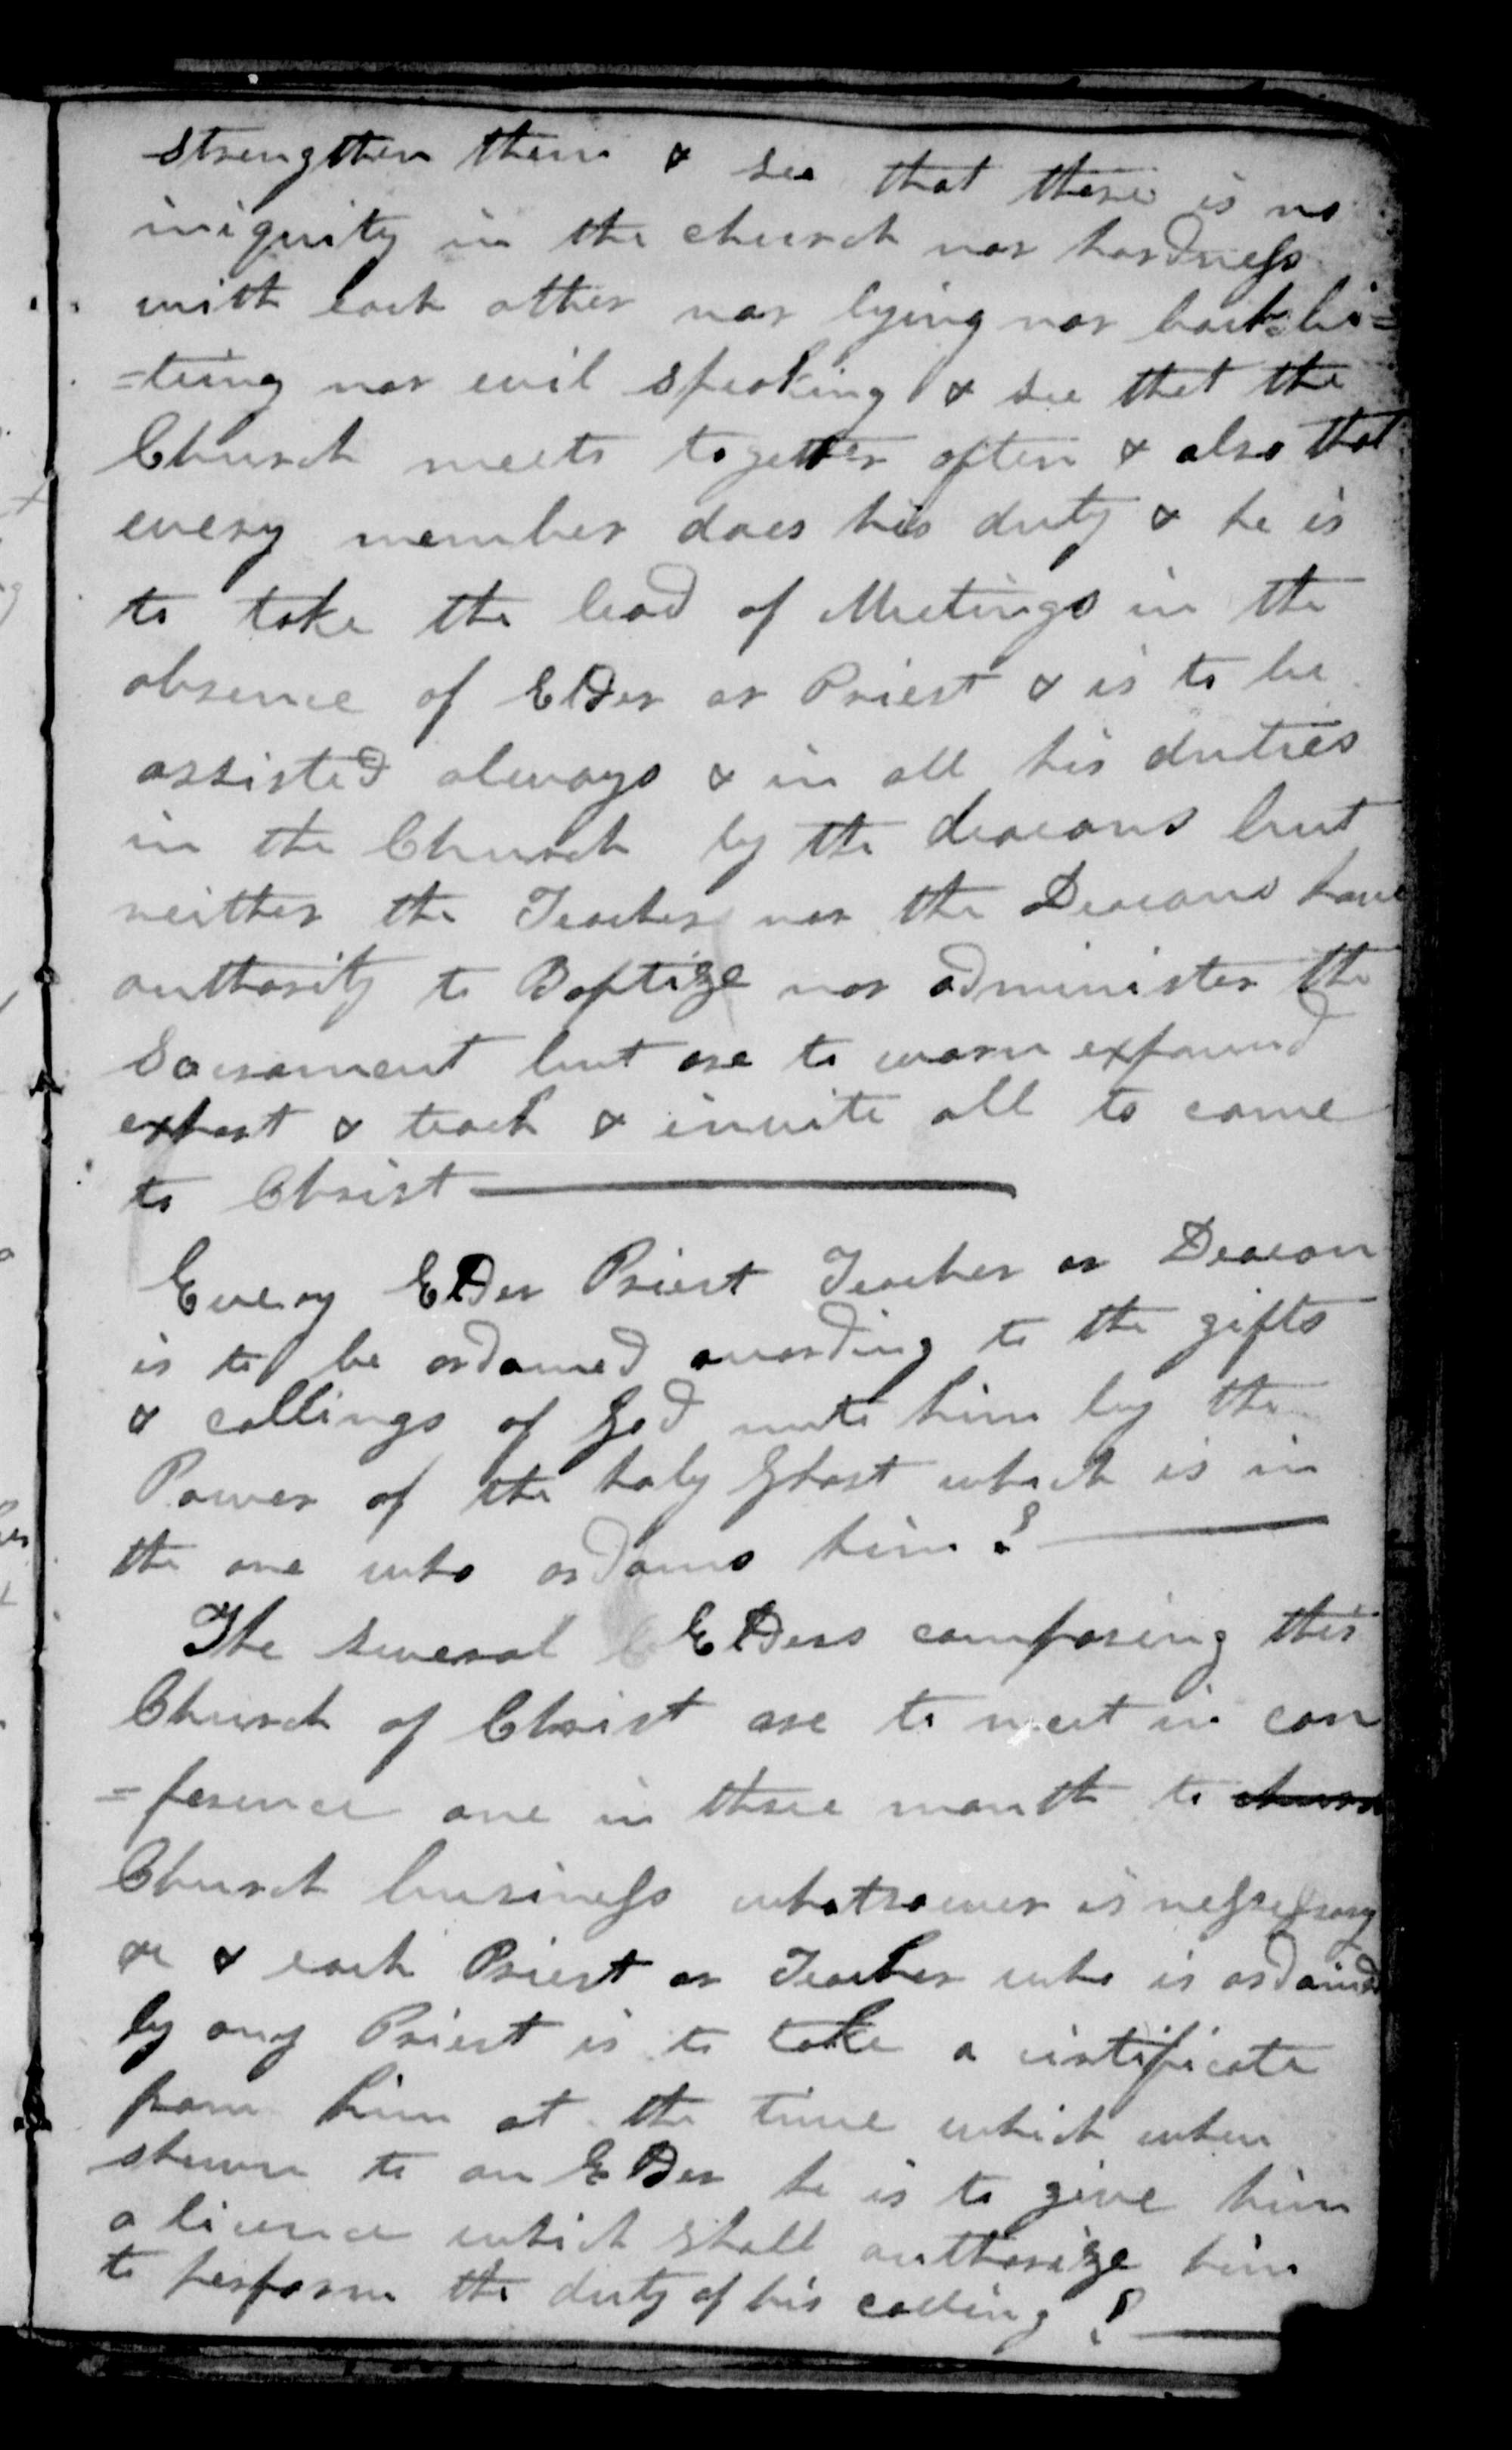 strengthen them & see that there is no
iniquity in the church nor hardness
with each other nor lying nor back=bi=
=teing nor evil speaking & see that the
Church meets together often & also that
every member does his duty & he is
to take the lead of Meetings in the
absence of Elder or Priest & is to be
assisted always & in all his duties
in the Church by the deacons but
neither the Teacher nor the Deacons have
authority to Baptize nor administer the
Sacrament but are to warn expound
exhort & teach & invite all to come
to Christ
Every Elder Priest Teacher or Deacon
is to be ordained according to the gifts
& callings of God unto him by the
Power of the holy Ghost which is in
the one who ordains him !
The several Elders composing this
Church of Christ are to meet in con
=ference one in three month to church
Church business whatsoever is nessessary
&c & each Priest or Teacher who is ordained
by any Priest is to take a certificate
from him at the time which when
shewn to an Elder he is to give him
a licence which shall authorize him
to perform the duty of his calling !